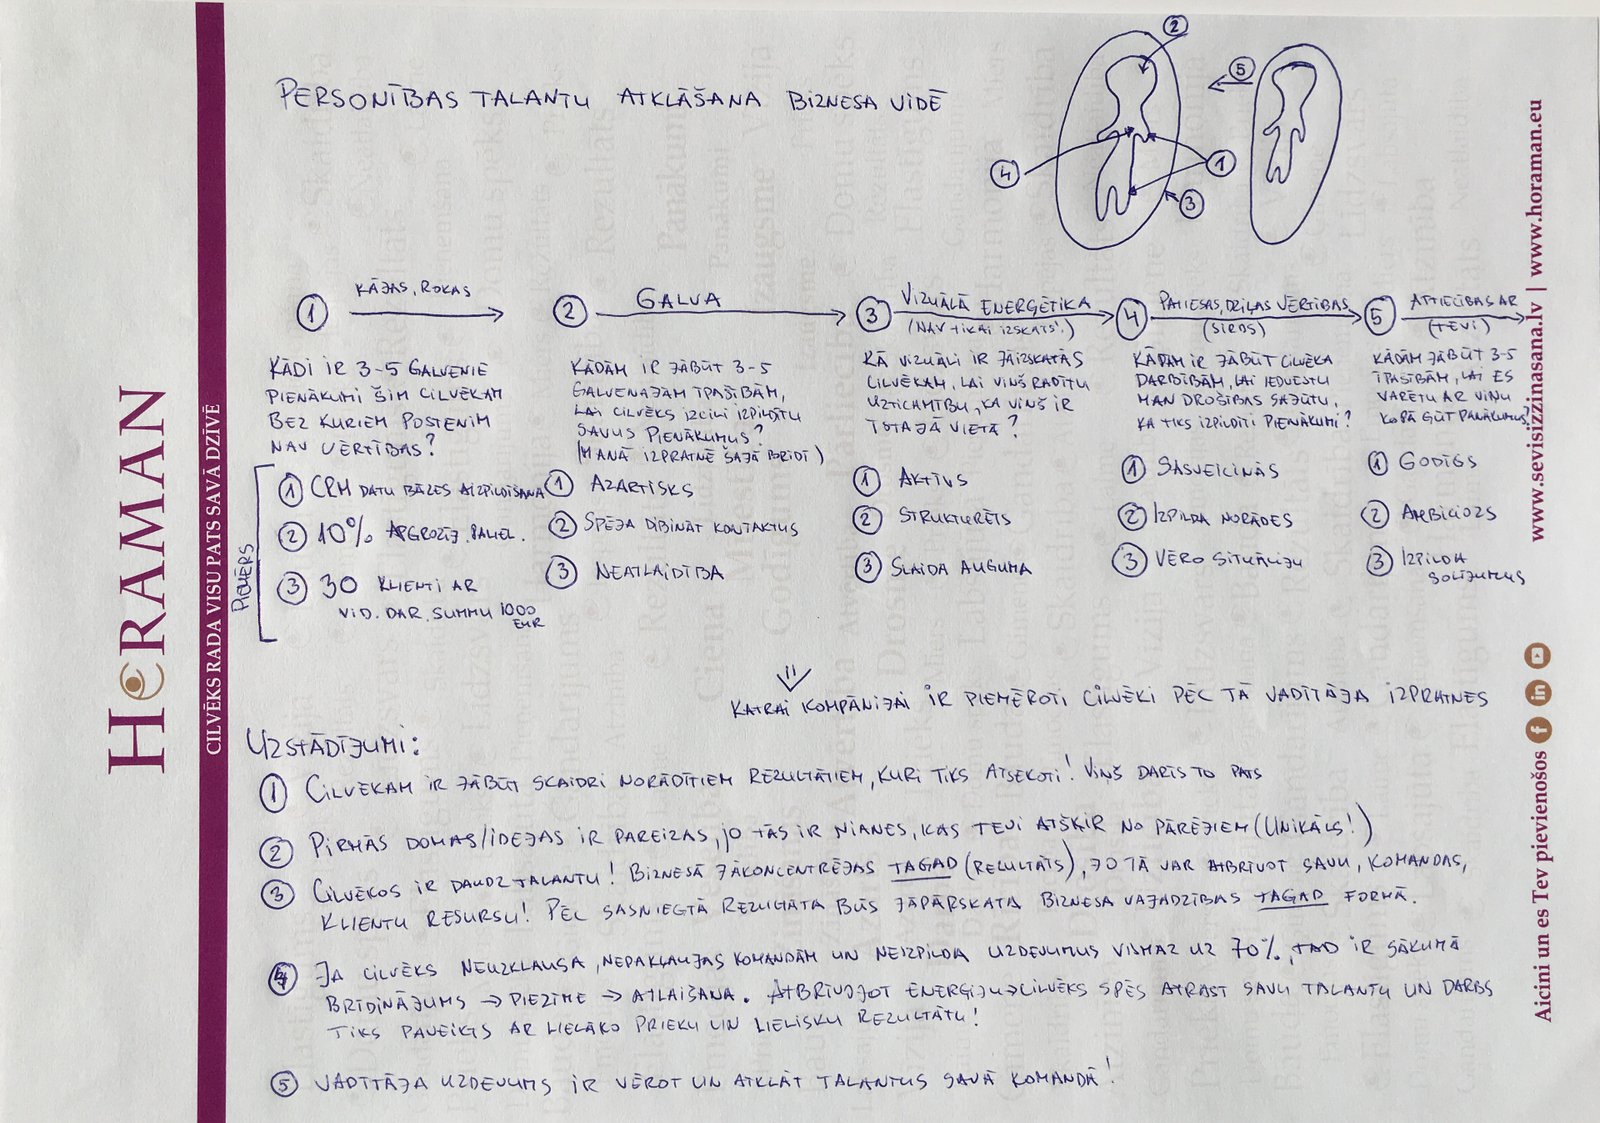 PERSONĪBAS TALANTU ATKLĀŠANA BIZNESA VIDĒ
2
5
4
1
3
1 KĀJAS, ROKAS
KĀDI IR 3-5 GALVENIE
PIENĀKUMI ŠIM CILVĒKAM
BEZ KURIEM POSTENIM
NAV VĒRTĪBAS?
PIEMĒRS
1 CRM DATU BĀZES AIZPILDĪŠANA
2 10% APGROZĪJ. PALIEL.
3 30 KLIENTI AR
VID. DAR. SUMMU 1000
EUR
2 GALVA
KĀDĀM IR JĀBŪT 3-5
GALVENAJĀM ĪPAŠĪBĀM,
LAI CILVĒKS IZCILI IZPILDĪTU
SAVUS PIENĀKUMUS?
(MANĀ IZPRATNĒ ŠAJĀ BRĪDĪ)
1 AZARTISKS
2 SPĒJA DIBINĀT KONTAKTUS
3 NEATLAIDĪBA
3 VIZUĀLĀ ENERĢĒTIKA
(NAV TIKAI IZSKATS!)
KĀ VIZUĀLI IR JĀIZSKATĀS
CILVĒKAM, LAI VIŅŠ RADĪTU
UZTICAMĪBU, KA VIŅŠ IR
ĪSTAJĀ VIETĀ?
1 AKTĪVS
2 STRUKTURĒTS
3 SLAIDA AUGUMA
4 PATIESAS, DZIĻAS VĒRTĪBAS
(SIRDS)
KĀDĀM IR JĀBŪT CILVĒKA
DARBĪBĀM, LAI IEDVESTU
MAN DROŠĪBAS SAJŪTU,
KA TIKS IZPILDĪTI PIENĀKUMI?
1 SASVEICINĀS
2 IZPILDA NORĀDES
3 VĒRO SITUĀCIJU
5 ATTIECĪBAS AR
(TEVI)
KĀDĀM JĀBŪT 3-5
ĪPAŠĪBĀM, LAI ES
VARĒTU AR VIŅU
KOPĀ GŪT PANĀKUMUS?
1 GODĪGS
2 AMBICIOZS
3 IZPILDA
SOLĪJUMUS
KATRAI KOMPĀNIJAI IR PIEMĒROTI CILVĒKI PĒC TĀ VADĪTĀJA IZPRATNES
UZSTĀDĪJUMI:
1 CILVĒKAM IR JĀBŪT SKAIDRI NORĀDĪTIEM REZULTĀTIEM, KURI TIKS ATSEKOTI! VIŅŠ DARĪS TO PATS
2 PIRMĀS DOMAS/IDEJAS IR PAREIZAS, JO TĀS IR NIANSES, KAS TEVI ATŠĶIR NO PĀRĒJIEM (UNIKĀLS!)
3 CILVĒKOS IR DAUDZ TALANTU! BIZNESĀ JĀKONCENTRĒJAS TAGAD (REZULTĀTS), JO TĀ VAR ATBRĪVOT SAVU, KOMANDAS,
KLIENTU RESURSU! PĒC SASNIEGTĀ REZULTĀTA BŪS JĀPĀRSKATA BIZNESA VAJADZĪBAS TAGAD FORMĀ.
4 JA CILVĒKS NEUZKLAUSA, NEPAKĻAUJAS KOMANDĀM UN NEIZPILDA UZDEVUMUS VISMAZ UZ 70%, TAD IR SĀKUMĀ
BRĪDINĀJUMS → PIEZĪME → ATLAIŠANA. ATBRĪVOJOT ENERĢIJU → CILVĒKS SPĒS ATRAST SAVU TALANTU UN DARBS
TIKS PAVEIKTS AR LIELĀKO PRIEKU UN LIELISKU REZULTĀTU!
5 VADĪTĀJA UZDEVUMS IR VĒROT UN ATKLĀT TALANTUS SAVĀ KOMANDĀ!
HORAMAN
CILVĒKS RADA VISU PATS SAVĀ DZĪVĒ
Aicini un es Tev pievienošos
www.sevisizzinasana.lv | www.horaman.eu